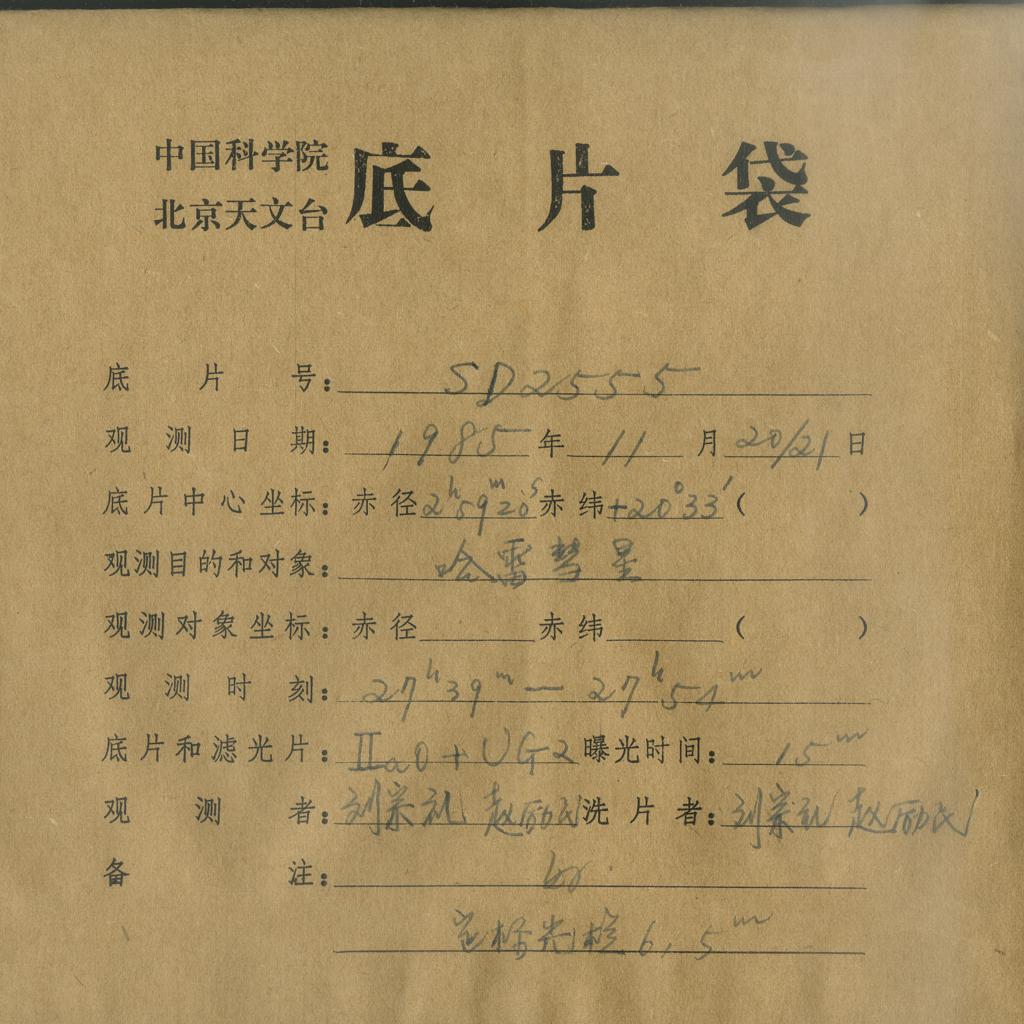 中国科学院
北京天文台
底片袋
底片号：SD2555
观测日期：1985年11月20/21日
底片中心坐标：赤径2ʰ59ᵐ20ˢ赤纬+20°33′（ ）
观测目的和对象：哈雷彗星
观测对象坐标：赤径 赤纬 （ ）
观测时刻：27ʰ39ᵐ—27ʰ54ᵐ
底片和滤光片：IIaO+UG2曝光时间：15ᵐ
观测者：刘宗礼 赵励民洗片者：刘宗礼 赵励民
备注：
定标光楔6.5ᵐ